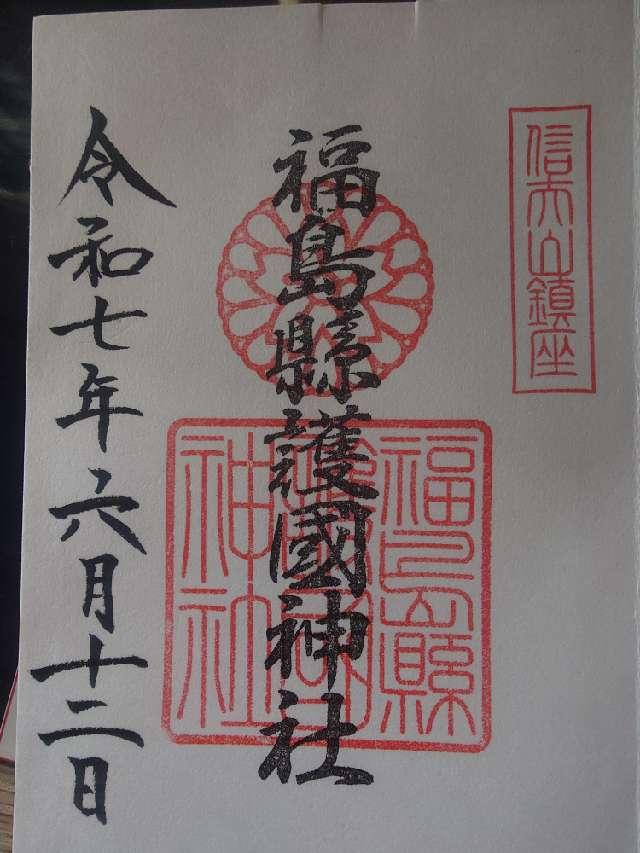 信夫山鎮座
福島縣護國神社
福島縣護國神社
令和七年六月十二日